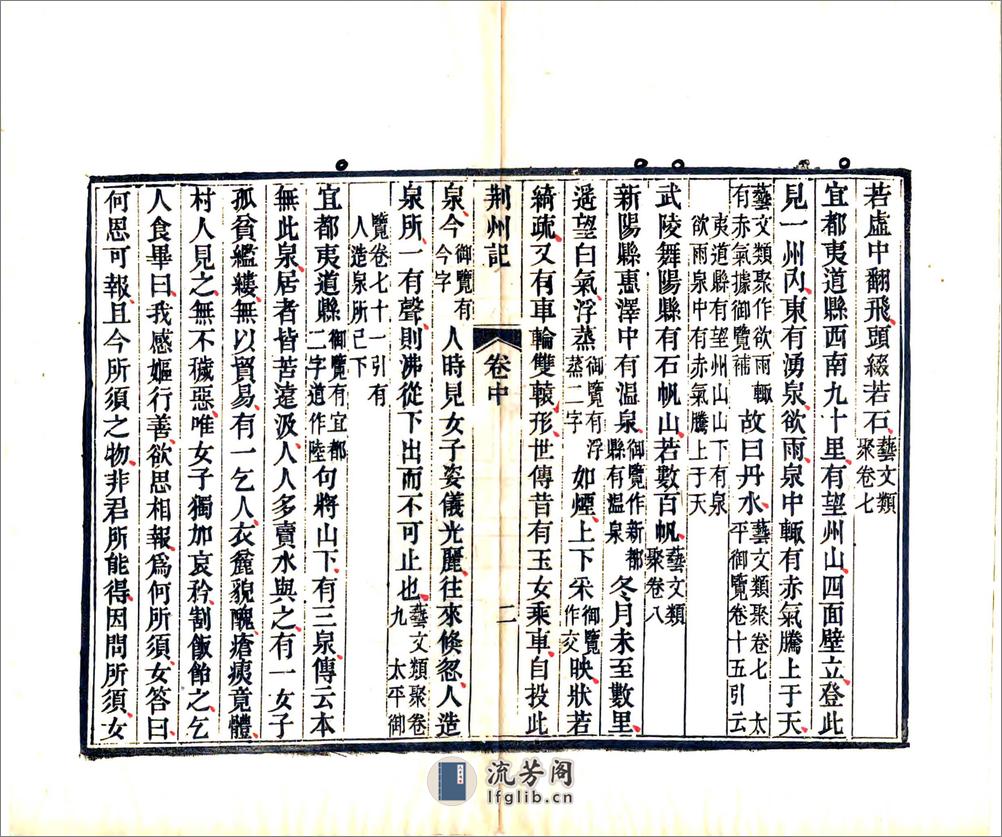 若虛中翻飛頭綴若石藝文類聚卷七
宜都夷道縣西南九十里有望州山四面壁立登此
見一州內東有湧泉欲雨泉中輒有赤氣騰上于天
藝文類聚作欲雨輒有赤氣據御覽補故曰丹水藝文類聚卷七 太平御覽卷十五引云
夷道縣有望州山山下有泉欲雨泉中有赤氣騰上于天
武陵舞陽縣有石帆山若數百帆藝文類聚卷八
新陽縣惠澤中有溫泉御覽作新都縣有溫泉冬月未至數里
遥望白氣浮蒸御覽有浮蒸二字如煙上下采御覽作交映狀若
綺疏又有車輪雙轅形世傳昔有玉女乘車自投此
荆州記 卷中 二
泉今御覽有今字人時見女子姿儀光麗往來倏忽人造
泉所一有聲則沸從下出而不可止也藝文類聚卷九 太平御
覽卷七十一引有人造泉所已下
宜都夷道縣御覽有宜都二字道作陸句將山下有三泉傳云本
無此泉居者皆苦遠汲人人多賣水與之有一女子
孤貧襤褸無以貿易有一乞人衣麄貌醜瘡痍竟體
村人見之無不穢惡唯女子獨加哀矜割飯飴之乞
人食畢曰我感嫗行善欲思相報爲何所須女答曰
何恩可報且今所須之物非君所能得因問所須女
流芳阁
lfglib.cn